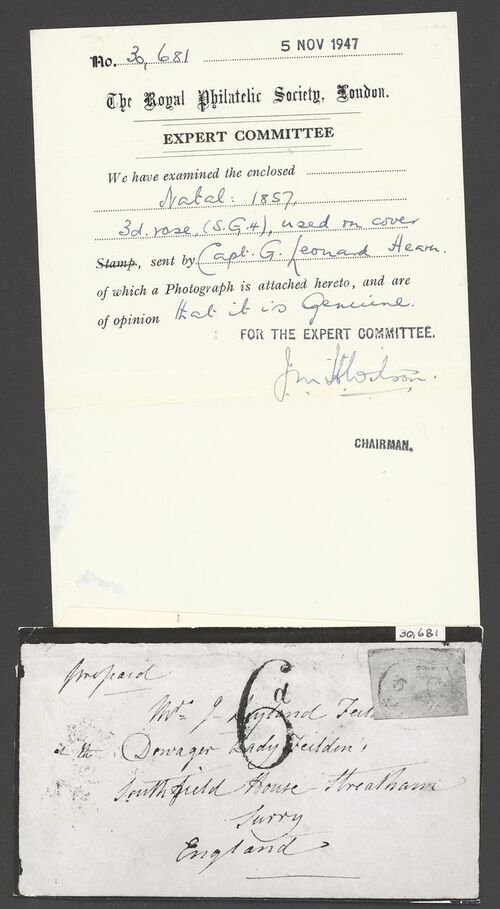 No. 30,681 5 NOV 1947
The Royal Philatelic Society, London.
EXPERT COMMITTEE
We have examined the enclosed
Natal: 1857,
3d. rose, (S.G.4), used on cover
Stamp, sent by Capt. G. Leonard Hearn.
of which a Photograph is attached hereto, and are
of opinion that it is Genuine.
FOR THE EXPERT COMMITTEE.
CHAIRMAN.
30,681
prepaid
6d
Mrs J Leyland Feil
at the Dowager Lady Feilden's
Southfield House Streatham
Surry
England